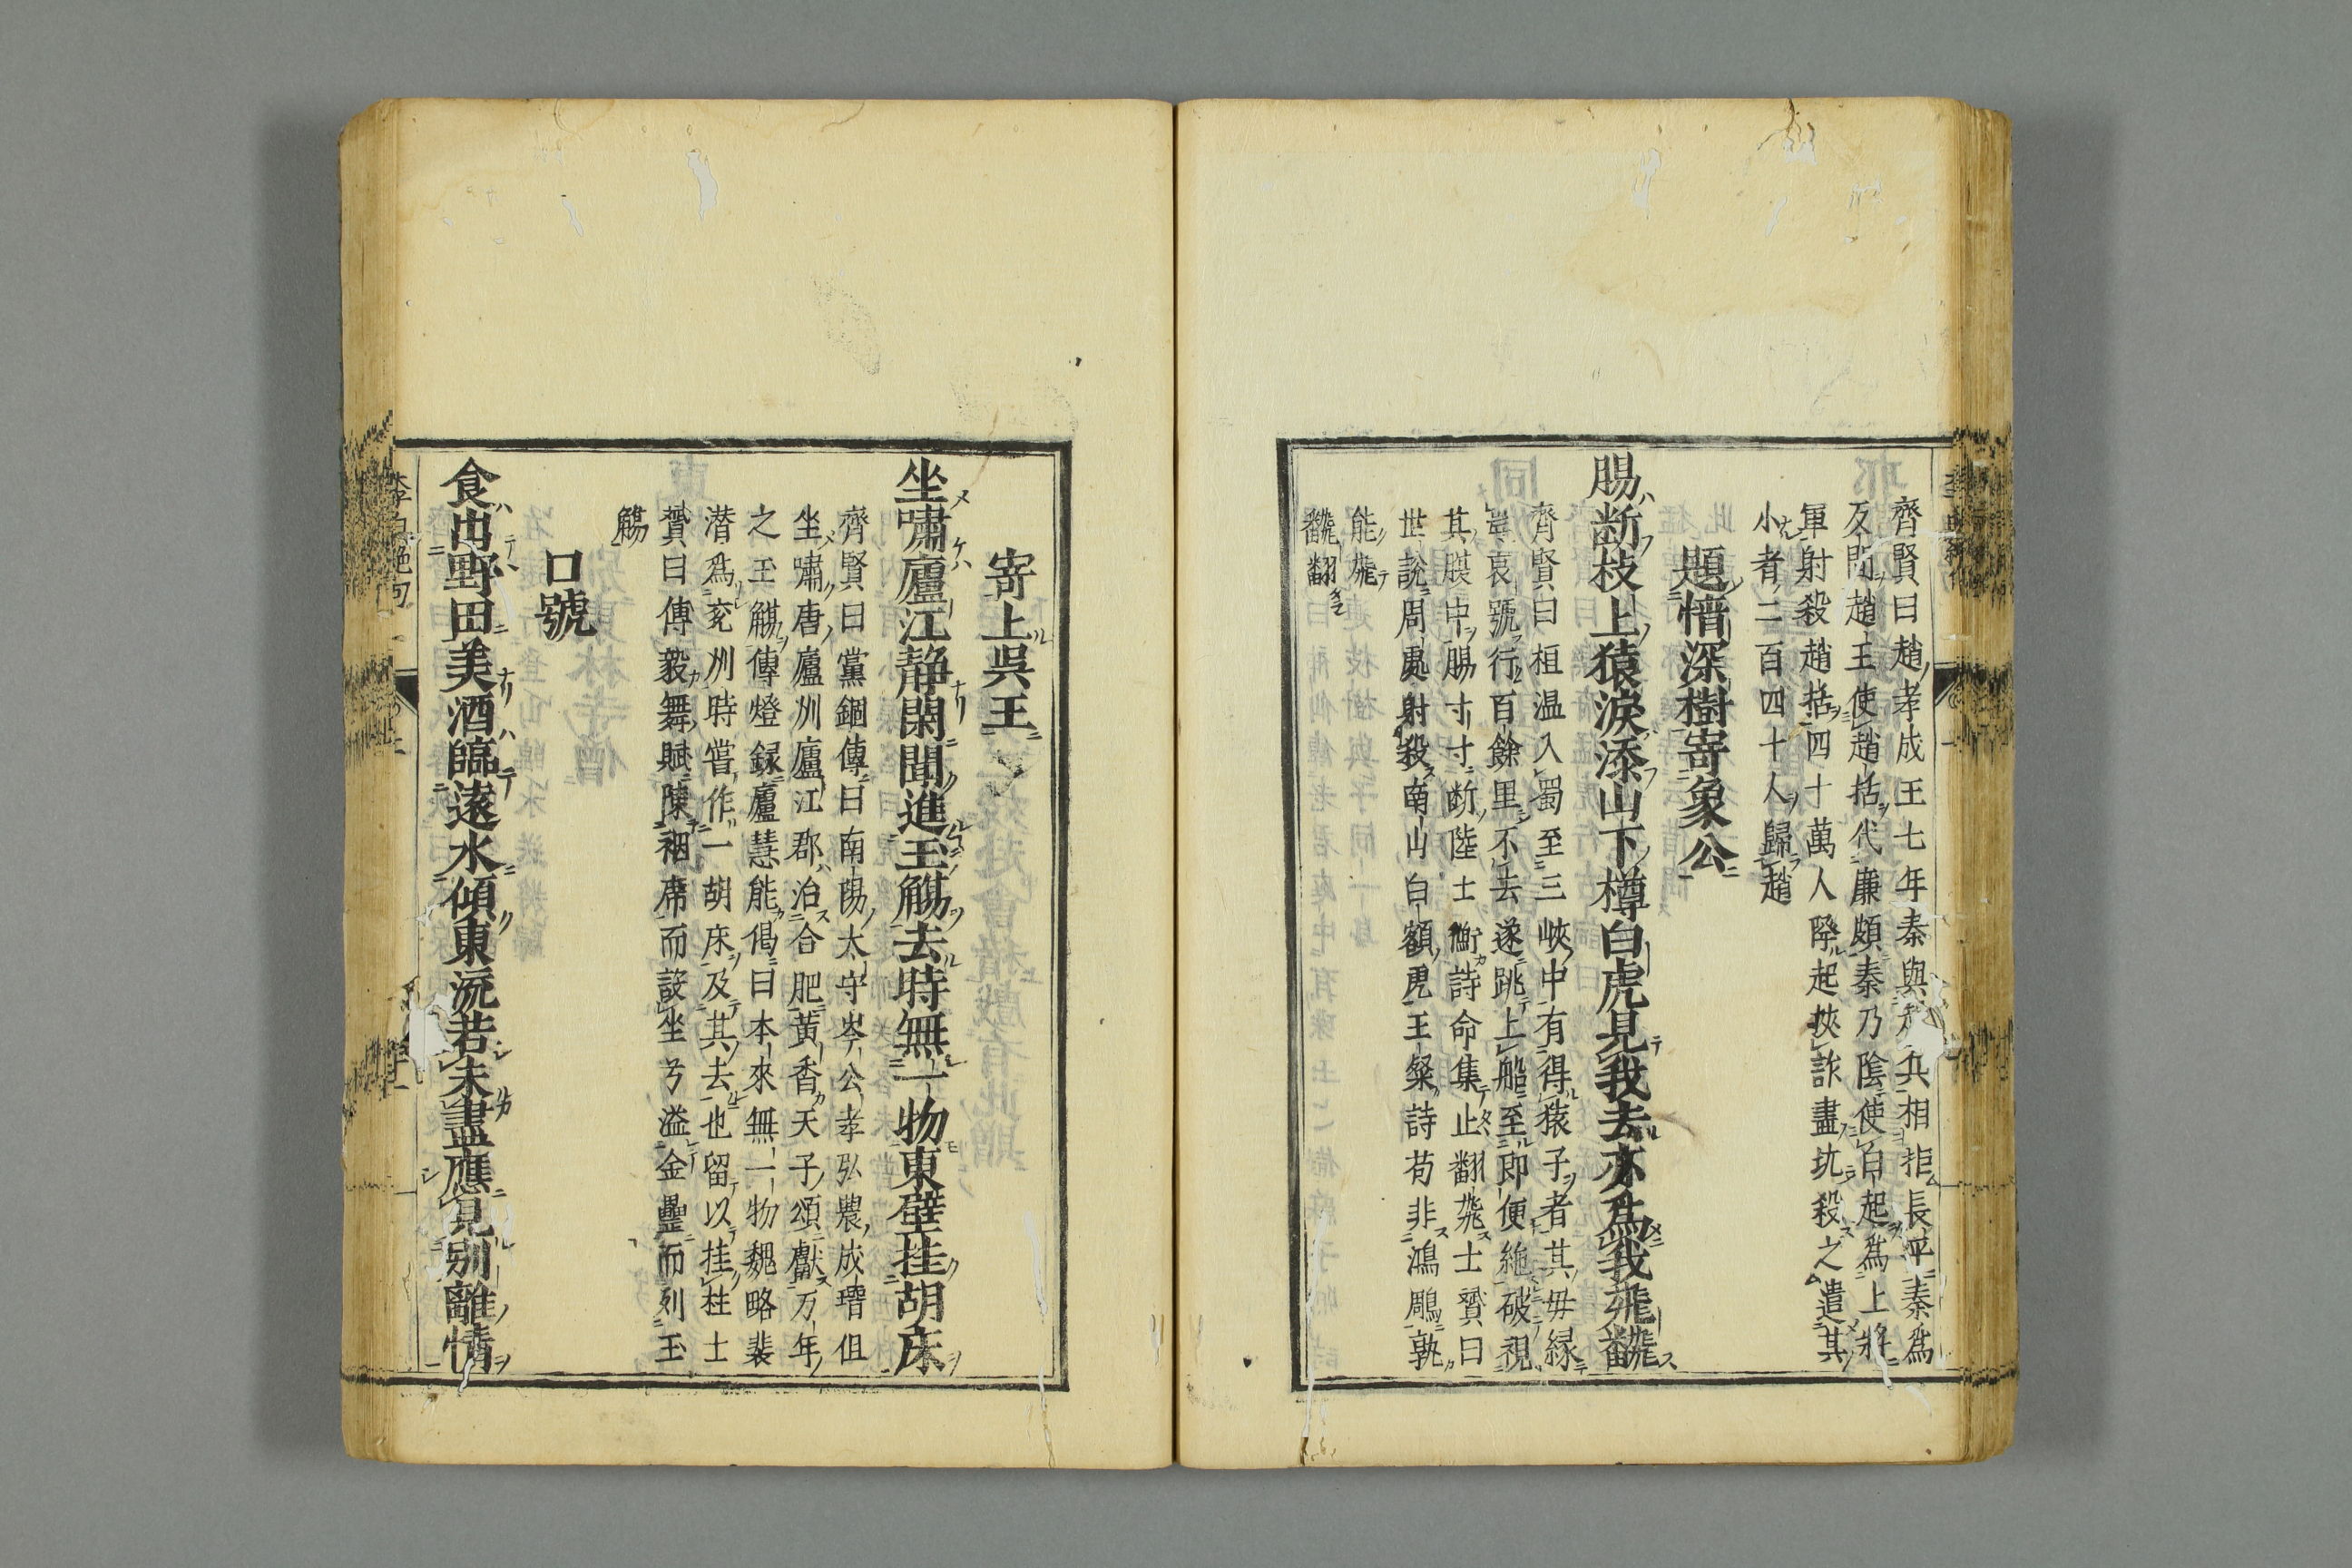 齊賢曰趙孝成王七年秦與兵相拒長平秦爲
反間趙王使趙括代廉頗秦乃陰使白起爲上將
軍射殺趙括四十萬人降起挾詐盡坑殺之遣其
小者二百四十人歸趙
題㥽深樹寄象公
腸断枝上猿淚添山下樽白虎見我去亦爲我飛翻
齊賢曰桓温入蜀至三峽中有得猿子者其毋緑
岸哀號行百餘里不去遂跳上船至即便絶破視
其腹中腸寸寸断陸士衡詩命集止翻飛士贇曰
世說周處射殺南山白額虎王粲詩苟非鴻鵰孰
能飛飜
寄上呉王
坐嘯廬江静閑聞進玉觴去時無一物東壁挂胡床
齊賢曰黨錮傳曰南陽太守岑公孝弘農成瑨伹
坐嘯唐廬州廬江郡治合肥黄香天子頌獻万年
之玉觴傳燈録廬慧能偈曰本來無一物魏略裴
潜爲兖州時嘗作一胡床及其去也留以挂柱士
贇曰傅毅舞賦陳裀席而設坐兮溢金罍而列玉
觴
口號
食出野田美酒臨遠水傾東流若未盡應見别離情
李白絶句